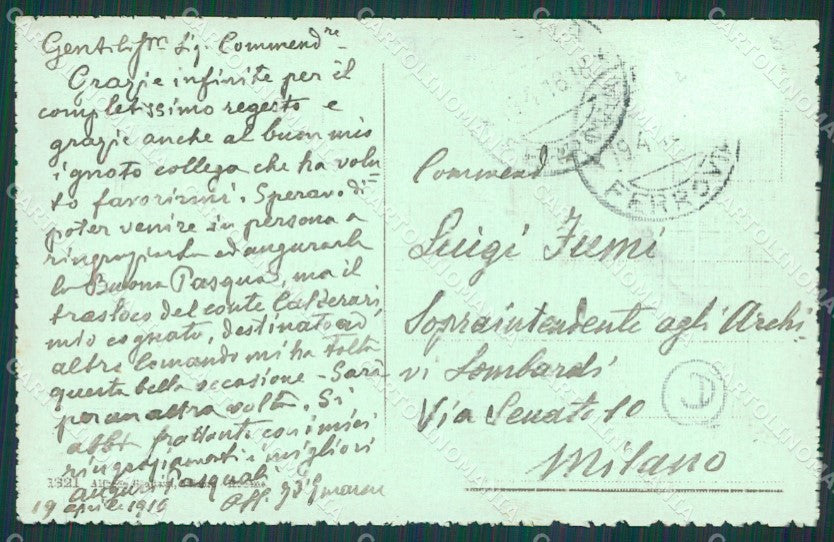 Gentiliss.mo Sig. Commend.re
Grazie infinite per il
completissimo regesto e
grazie anche al buon mio
ignoto collega che ha volu-
to favorirmi. Speravo di
poter venire in persona a
ringraziarla ed augurarle
la Buona Pasqua, ma il
trasloco del conte Calderari,
mio cognato, destinato ad
altro Comando mi ha tolta
questa bella occasione - Sarà
per un'altra volta. Si
abbia frattanto con i miei
ringraziamenti i migliori
auguri Pasquali
1321
19 aprile 1916 Aff.
Commend
Luigi Fumi
Sopraintendente agli Archi-
vi Lombardi
Via Senato 10
Milano
FERROVIA
19.4
CARTOLINOMANIA